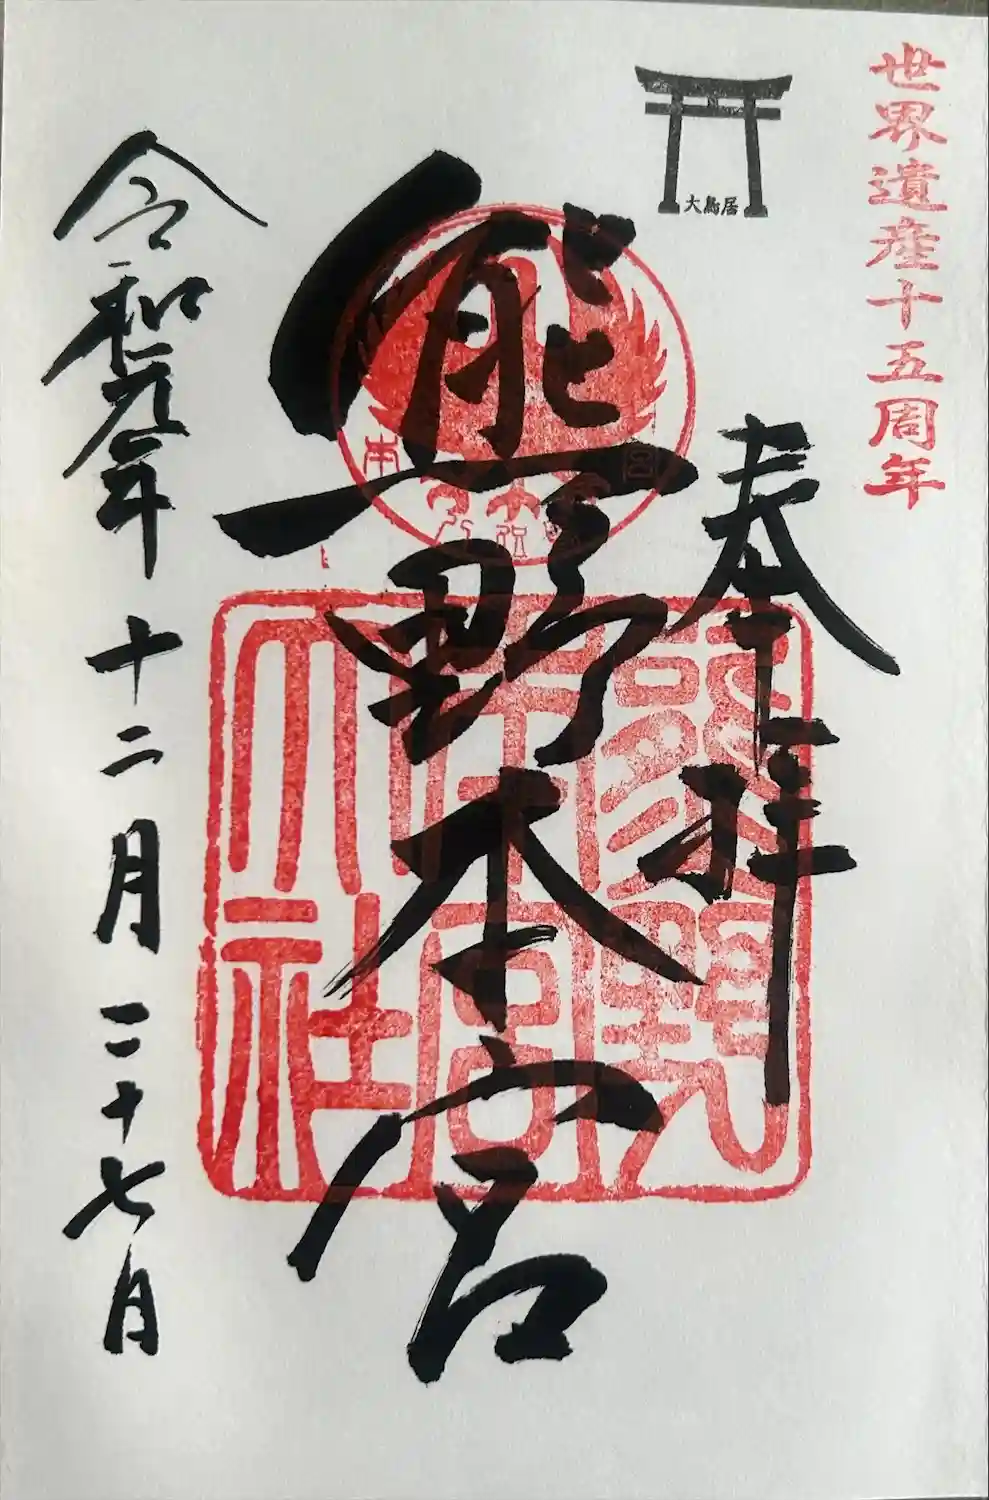 世界遺産十五周年
大鳥居
奉拝
熊野本宮
熊野
本宮
大社
令和元年十二月二十七日